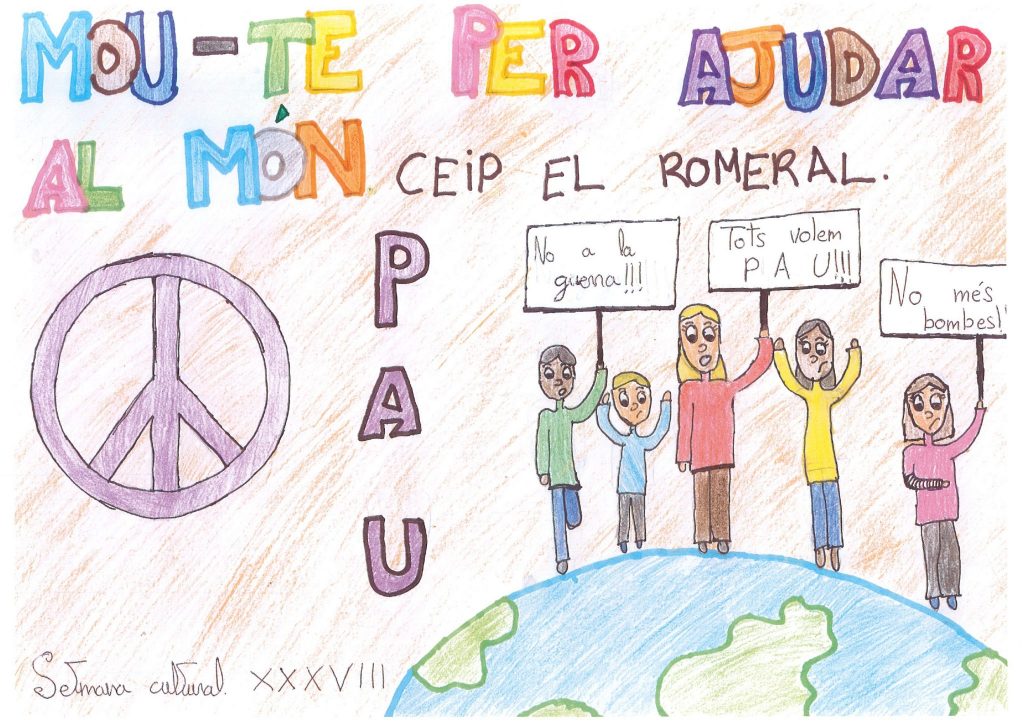 MOU-TE PER AJUDAR
AL MÓN CEIP EL ROMERAL.
PAU
No a la
guerra!!!
Tots volem
PAU!!!
No més
bombes!!
Setmana cultural. XXXVIII